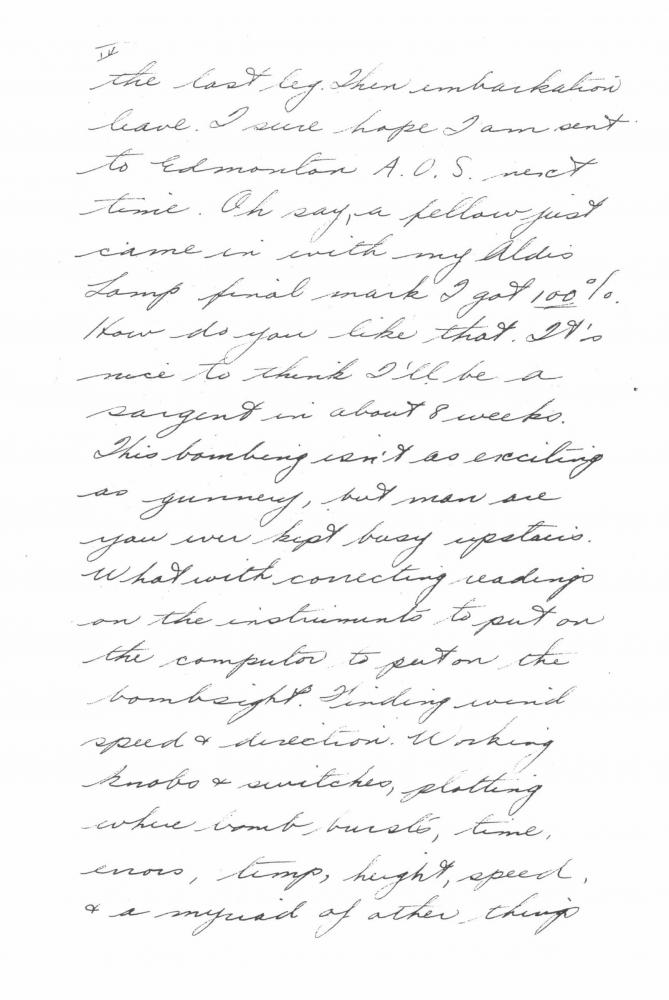 IV
the last leg. Then embarkation
leave. I sure hope I am sent
to Edmonton A.O.S. next
time. Oh say, a fellow just
came in with my Aldis
Lamp final mark I got 100%.
How do you like that. It's
nice to think I'll be a
sargent in about 8 weeks.
This bombing isn't as exciting
as gunnery, but man are
you ever kept busy upstairs.
What with correcting readings
on the instruments to put on
the computor to put on the
bombsight. Finding wind
speed & direction. Working
knobs & switches, plotting
where bomb bursts, time,
errors, temp, height, speed,
& a myriad of other things